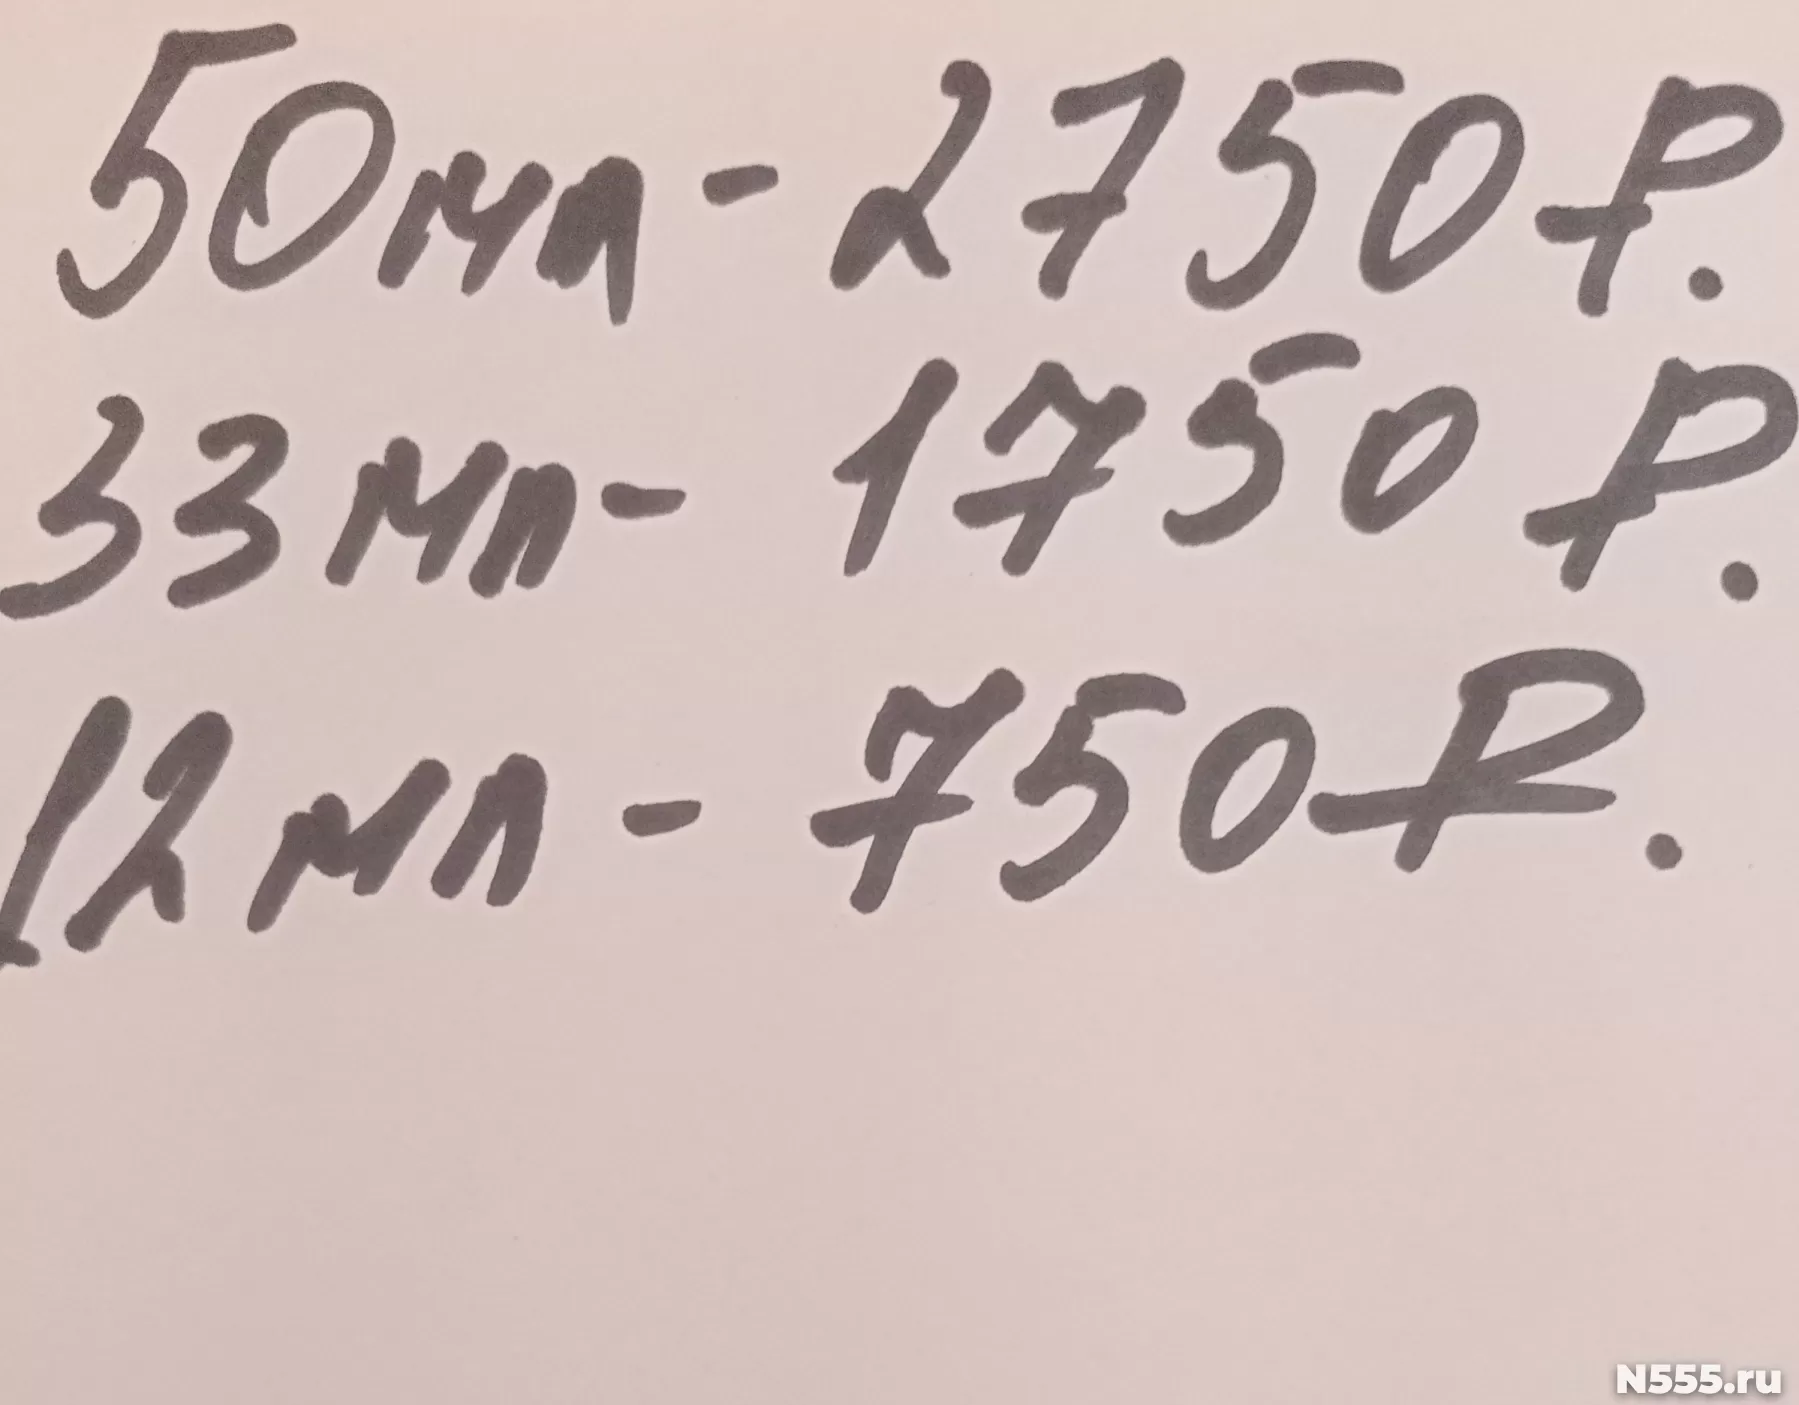 50мл - 2750₽.
33мл - 1750₽.
12мл - 750₽.
N555.ru